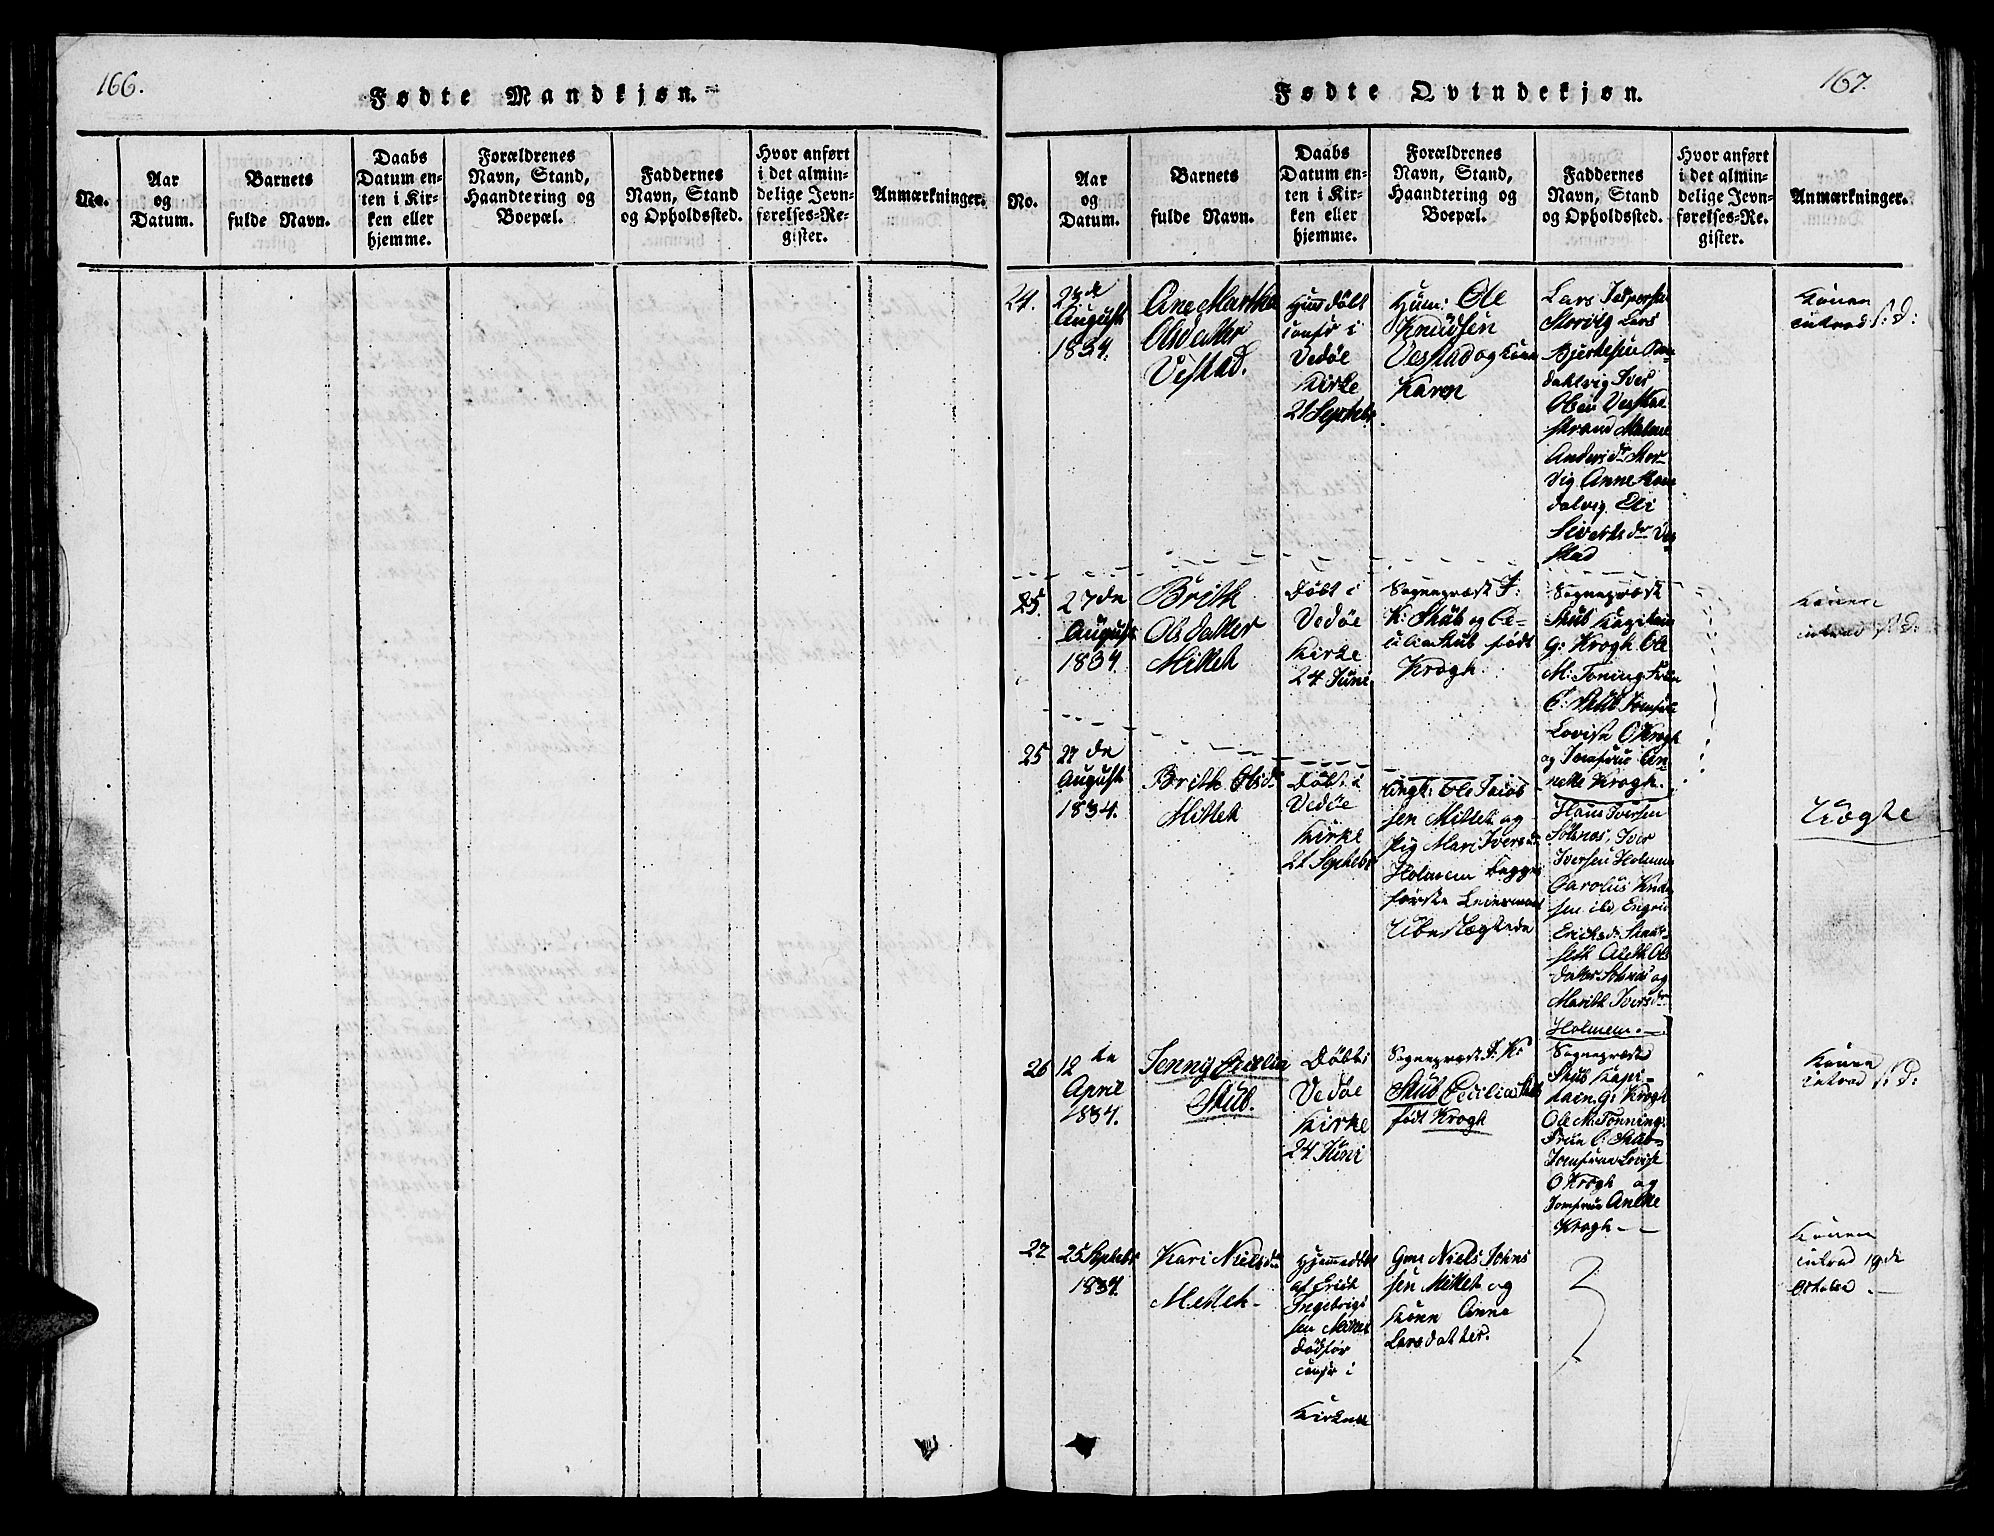 166.
Fødte Mandkjøn.
No.
Aar
og
Datum.
Barnets
fulde Navn.
Daabs
Datum en-
ten i Kir-
ken eller
hjemme.
Forældrenes
Navn, Stand,
Haandtering og
Boepæl.
Faddernes
Navn, Stand
og Opholdssted.
Hvor anført
i det almin-
delige Jevn-
førelses-Re-
gister.
Anmærkninger.
167.
Fødte Qvindekjøn.
No.
Aar
og
Datum.
Barnets
fulde Navn.
Daabs
Datum en-
ten i Kir-
ken eller
hjemme.
Forældrenes
Navn, Stand,
Haandtering og
Boepæl.
Faddernes
Navn, Stand
og Opholdssted.
Hvor anført
i det almin-
delige Jevn-
førelses-Re-
gister.
Anmærkninger.
24.
August
1834.
Ane Martha
Olsdatter
Vestad.
i
Vedøe
Kirke
21 Septebr
Hum: Ole
Knudsen
Vestad og Kone
Karen
Lars Jespersen
Storvig Lars
Olsen
Anders dr Stor-
vig Anne
dalvig Eli
Siverts dr Ve-
stad
Konen
introd s: d:
25.
27 de
August
1834
Brith
Olsdatter
Mittet
Døbt i
Vedøe
Kirke
24 Juni
Sognepræst J:
K: Stub og Ce-
cilia Stub født
Krogh
Sognepræst
Stub Kapitain
G: Krogh Ole
M: Toning Frue
C: Stub Jomfrue
Lovise O Krogh
og Jomfrue An-
nette Krogh.
Konen
introd s: d:
25
27 de
August
1834.
Brith Olsdr
Mittet
Døbt i
Vedøe
Kirke
21 Septebr
Ungk: Ole Jacob
sen Mittet og
Pig Mari Ivers dr
Holmem begges
første Leiermaal
Ubeslægtede
Hans Iversen
Sølsnes, Iver
Iversen Holmem
Carolus Knud-
sen ibd, Engrid
Ericksdr
seth Aleth Ols
datter Solsnes og
Marith Ivers dr
Holmem.
Uægte
26
12 te
April
1834.
Jenny Cecilia
Stub.
Døbt i
Vedøe
Kirke
24 Juni
Sognepræst J. K:
Stub Cecilia Stub
født Krogh
Sognepræst
Stub Kapi-
tain G: Krogh
Ole M: Tonning
Frue C: Stub
Jomfrue Lovise
O Krogh og
Jomfrue Anette
Krogh
Konen
introd s: d:
27
25 Septebr
1834.
Kari Nielsdr
Mittet
Hjemmedøbt
af Erick
Ingebrigt
sen Mittet
i
Kirken
Gm: Niels Johns
sen Mittet og
Kone Anne
Larsdatter.
Konen
introd 19de
October